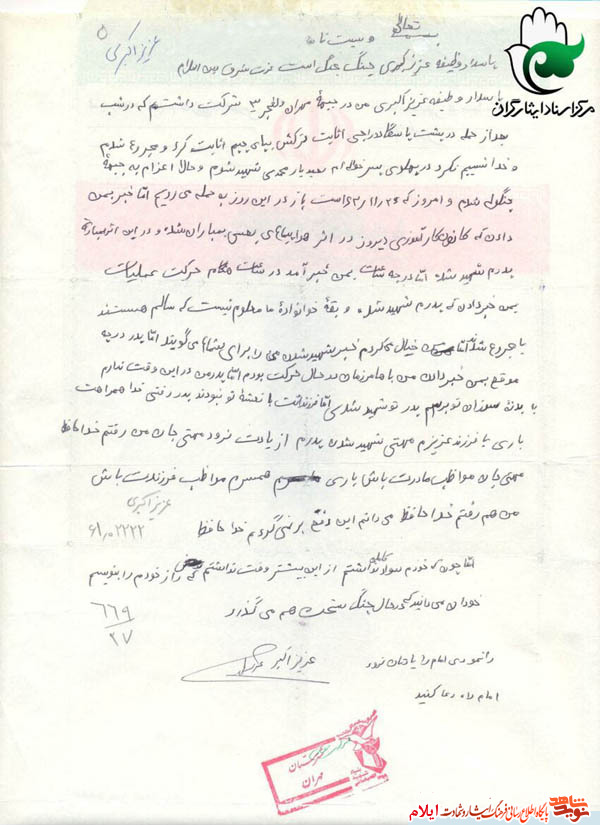 بسمه تعالی
وصیت نامه
عزیز اکبری
مرکز اسناد ایثارگران
پاسدار وظیفه عزیز اکبری جنگ جنگ است عزت شرف دین اسلام
پاسدار وظیفه عزیز اکبری من در جبهه مهران والفجر ۳ شرکت داشتم که در شب
بعد از حمله در پشت پاسگاه دراجی اثابت ترکش بپای چپم اثابت کرد و مجروع شدم
و خدا نسیبم نکرد در پهلوی پسر خاله ام شهید شوم و حال اعزام به جبهه
چنگوله شدم و امروز که ۶۲/۱۱/۲۶ است باز در این روز به حمله می رویم امّا خبر بمن
دادن که دیروز در اثر هواپیماهای بعسی بمباران شده و در این اثر
پدرم شهید شده امّا در چه ساعت بمن خبر آمد در ساعت هنگام حرکت عملیات
بمن خبر دادن که پدرم شهید شده و بقیّه خانوادهٔ ما معلوم نیست که سالم هستند
یا مجروع شده امّا خیال می کردم خبر شهید شدن من را برای شما می گویند امّا پدر در چه
موقع بمن خبر دادن من با همرزمان در حال حرکت بودم امّا پدر من در این وقت ندارم
تو شهید شدی امّا فرزندانت با نعشهٔ تو نبودند پدر رفتی خدا همراهت
باری با فرزند عزیزم مهتی شهید شدن پدرم از یادت نرود مهتی جان من رفتم خدا حافظ
مهتی جان مواظب مادرت باش باری همسرم مواظب فرزندت باش
من هم رفتم خدا حافظ می دانم این دفع بر نمی گردم خدا حافظ
عزیز اکبری
۶۱/۰۲۲۲۲
امّا چون که خودم سواد نداشتم از این بیشتر وقت نداشتم که راز خودم را بنویسم
خودتان می دانید که در حال جنگ سخت هم می گذرد
۶۶۹
۲۷
رانمودی امام را یادتان نرود
عزیز اکبر
امام را دعا کنید
مهران
نوید شاهد
پایگاه اطلاع رسانی فرهنگ ایثار و شهادت ایلام